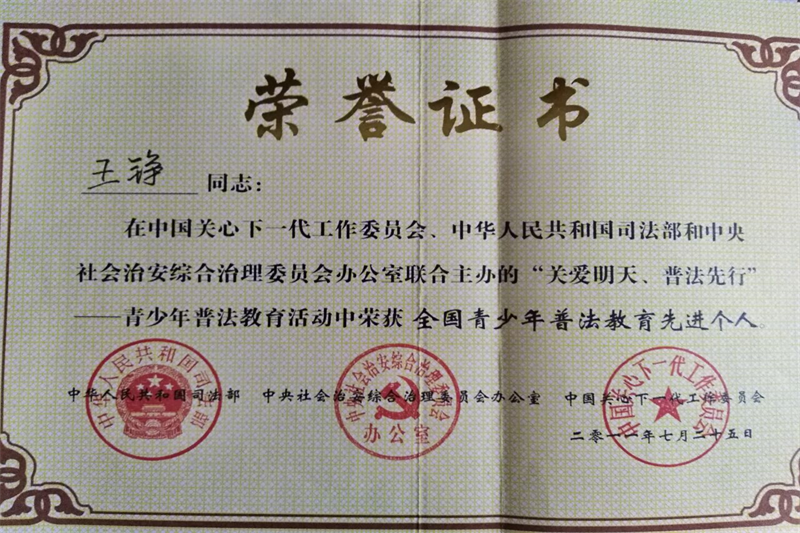 荣誉证书
王铮 同志：
在中国关心下一代工作委员会、中华人民共和国司法部和中央
社会治安综合治理委员会办公室联合主办的“关爱明天、普法先行”
——青少年普法教育活动中荣获 全国青少年普法教育先进个人。
中华人民共和国司法部 中央社会治安综合治理委员会办公室 中国关心下一代工作委员会
中华人民共和国司法部
中央社会治安综合治理委员会
办公室
中国关心下一代工作委员会
二零一一年七月二十五日